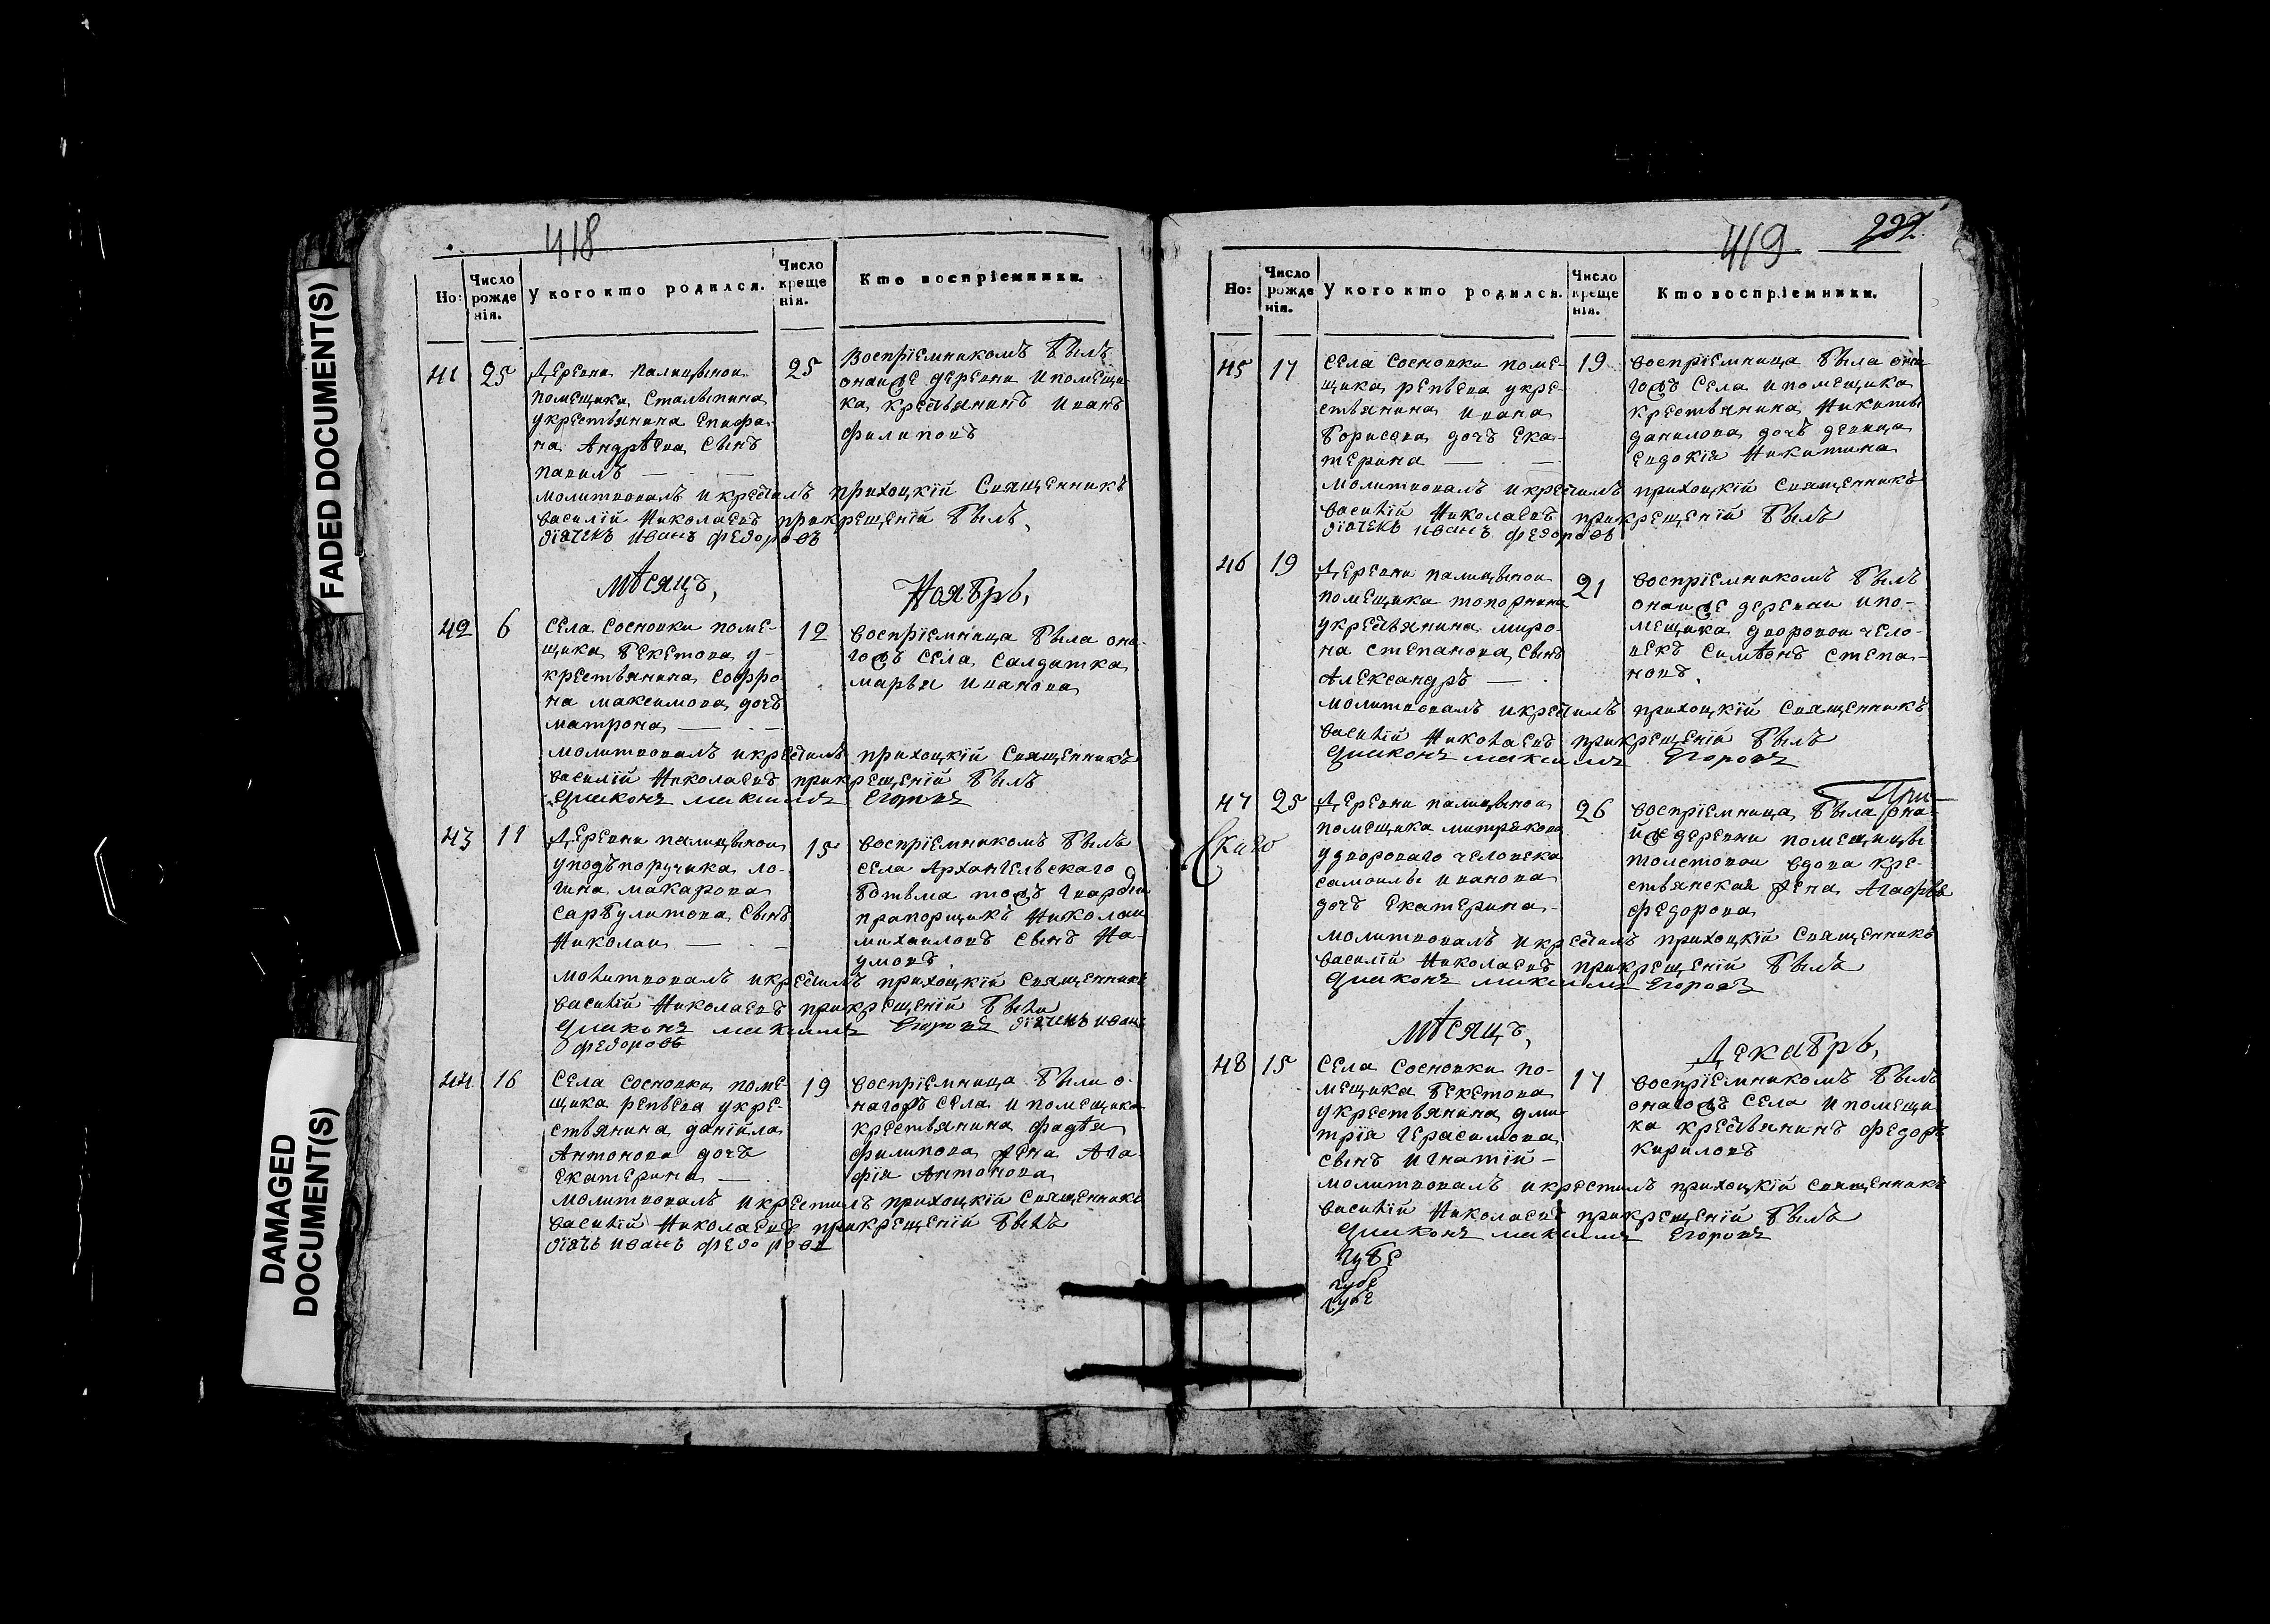 FADED DOCUMENT(S)
DAMAGED
DOCUMENT(S)
418
Но:
Число
рожде
нія.
У кого кто родился.
Число
креще
нія.
Кто воспріемники.
41 25
Деревни Палицыной
помещика Сталыпина
укрестьянина Епифа-
на Андрѣева сынъ
павилъ
25
Воспрїемникомъ былъ
онаиже деревни ипомещи-
ка крестьянинъ Иванъ
филиповъ
молитвовалъ икрестилъ прихоцкїй Священникъ
василїй Николаевъ прикрещенїй былъ
дїячекъ Иванъ федоровъ
Мѣсяцъ, Ноябрь,
42 6
Села Сосновки поме-
щика бекетова у-
крестьянина софро-
на максимова дочь
матрона
12
воспрїемница была она-
гожъ села Салдатка
марья иванова
молитвовалъ икрестилъ прихоцкїй Священникъ
василїй Николаевъ прикрещенїй былъ
диаконъ максимъ Егоровъ
43 11
Деревни палицыной
уподъпоручика ло-
гина макарова
сарбулатова сынъ
Николаи
15
воспрїемникомъ былъ
села Архангельскаго
ботьма тожъ гвардїи
прапорщикъ Николаи
михаиловъ сынъ На-
умовъ
молитвовалъ икрестилъ прихоцкїй священникъ
василїй Николаевъ прикрещенїй были
диаконъ максимъ Егоровъ дїячекъ иванъ
федоровъ
44 16
Села сосновки поме-
щика репьева укре-
стьянина данїйла
Антонова дочь
екатерина
19
воспрїемница были о-
нагожъ села ипомещика
крестьянина фадѣя
филипова жена Ага-
фїя Антонова
молитвовалъ икрестилъ прихоцкїй священникъ
василїй Николаевъ прикрещенїй былъ
дїячъ иванъ федоровъ
419 232
Но:
Число
рожде
нія.
У кого кто родился.
Число
креще
нія.
Кто воспріемники.
45 17
села сосновки поме-
щика репьева укре-
стьянина ивана
борисова дочь ека-
терина
19
воспрїемница была она-
гожъ села ипомещика
крестьянина Никиты
данилова дочь девица
евдокїя Никитина
молитвовалъ икрестилъ прихоцкїй священникъ
василїй Николаевъ прикрещенїй былъ
дїячекъ иванъ федоровъ
46 19
Деревни палицыной
помещика топорнина
укрестьянина миро-
на степанова сынъ
Александръ
21
воспрїемникомъ былъ
онаиже деревни ипо-
мещика дворовои чело-
векъ симѣонъ степа-
новъ
молитвовалъ икрестилъ прихоцкїй священникъ
василїй Николаевъ прикрещенїй былъ
диаконъ максимъ Егоровъ
При-
47 25
Деревни палицыной
помещика митракова
удвороваго человека
самоилы иванова
дочь екатерина-
26
воспрїемница была она-
йже деревни помещицы
толстовои вдова кре-
стьянская жена Агафья
федорова
скаго
молитвовалъ икрестилъ прихоцкїй священникъ
василїй Николаевъ прикрещенїй былъ
диаконъ максимъ Егоровъ
Мѣсяцъ, Декабрь,
48 15
Села Сосновки по-
мещика бекетова
укрестьянина дми-
трїя герасимова
сынъ игнатїй-
17
воспрїемникомъ былъ
онагожъ села ипомещи-
ка крестьянинъ федоръ
кириловъ
молитвовалъ икрестилъ прихоцкїй священникъ
василїй Николаевъ прикрещенїй былъ
диаконъ максимъ Егоровъ
губе
губе
губе